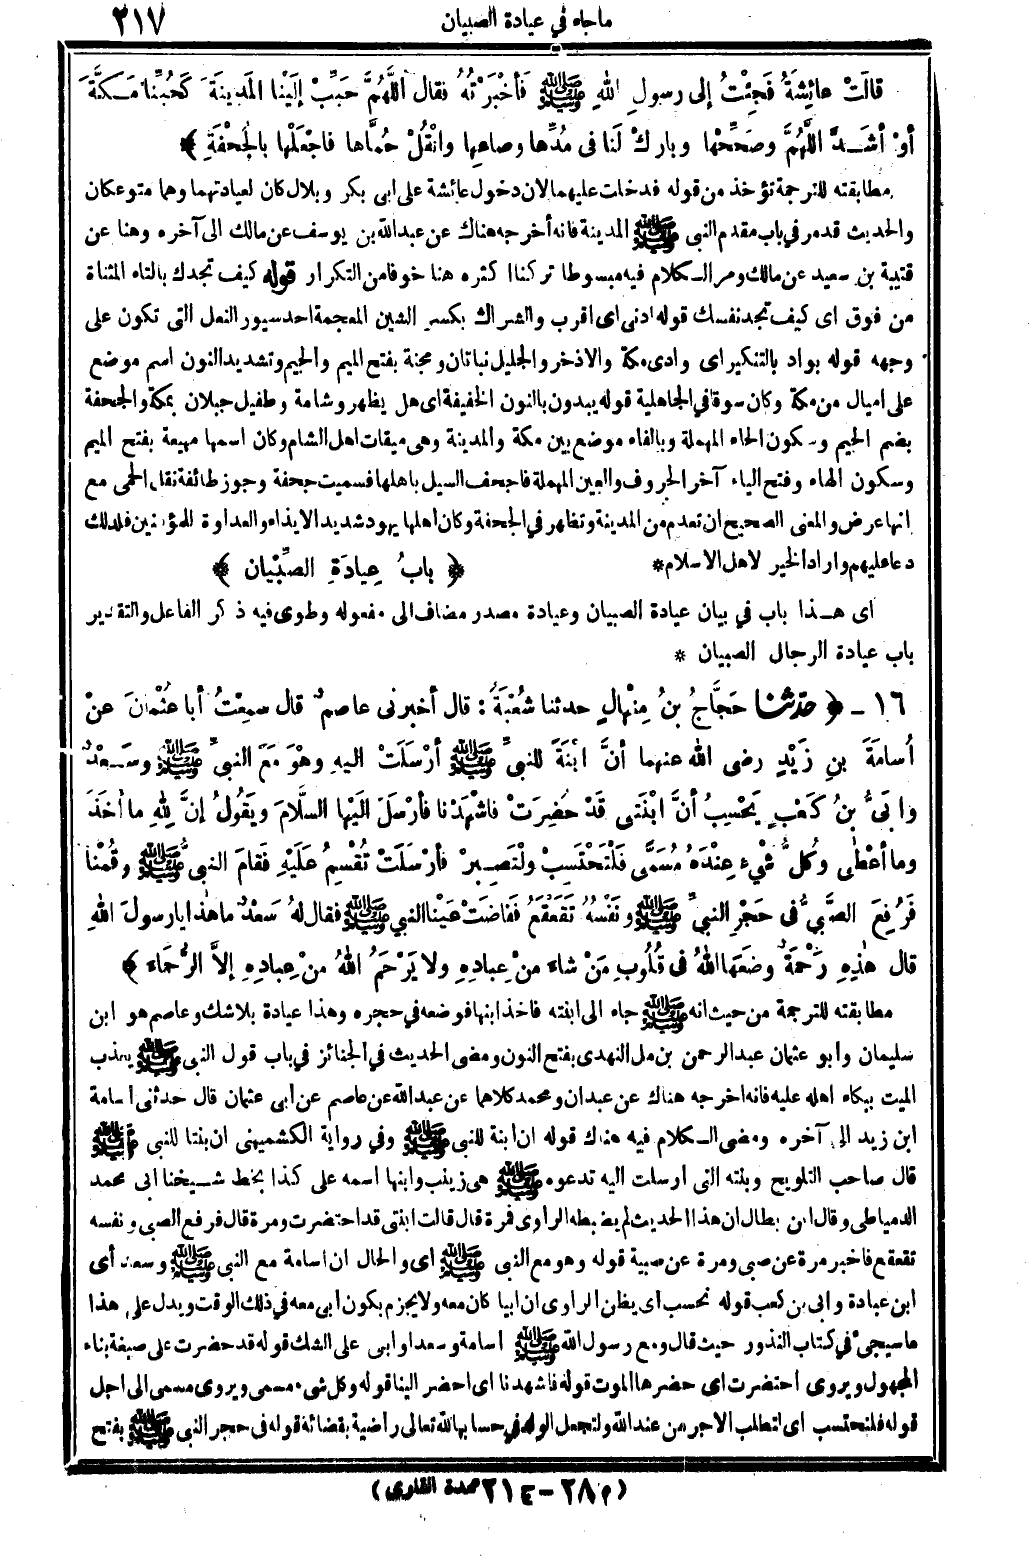 ماجاء في عيادة الصبيان ٢١٧
قالَتْ عائِشةُ فَجِئْتُ إلى رسولِ اللهِ ﷺ فَأخْبَرْتُهُ فقال اللَّهُمَّ حَبِّبْ إلَيْنا المَدِينةَ كَحُبِّنا مَكَّةَ
أوْ أشَدَّ اللَّهُمَّ وصَحِّحْها وبارِكْ لَنا فى مُدِّها وصاعِها وانْقُلْ حُمَّاها فاجْعَلْها بالجُحْفَةِ ﴾
مطابقته للترجمة تؤخذ من قوله فدخلت عليهما لان دخول عائشة على ابى بكر وبلال كان لعيادتهما وهما متوعكان
والحديث قدمر في باب مقدم النبى ﷺ المدينة فانه أخرجه هناك عن عبدالله بن يوسف عن مالك الى آخره وهنا عن
قتيبة بن سعيد عن مالك ومر الكلام فيه مبسوطا تركنا اكثره هنا خوفا من التكرار قوله كيف تجدك بالتاء المثناة
من فوق اى كيف تجد نفسك قوله ادنى اى اقرب والشراك بكسر الشين المعجمة احد سيور النعل التى تكون على
وجهه قوله بواد بالتنكير اى وادى مكة والاذخر والجليل نباتان ومجنة بفتح الميم والجيم وتشديد النون اسم موضع
على اميال من مكة وكان سوقا في الجاهلية قوله يبدون بالنون الخفيفة اى هل يظهر وشامة وطفيل جبلان بمكة والجحفة
بضم الجيم وسكون الحاء المهملة وبالفاء موضع بين مكة والمدينة وهى ميقات اهل الشام وكان اسمها مهيعة بفتح الميم
وسكون الهاء وفتح الياء آخر الحروف والعين المهملة فاجحف السيل باهلها فسميت جحفة وجوز طائفة نقل الحمى مع
انها عرض والمعنى الصحيح ان تعدم من المدينة وتظهر في الجحفة وكان اهلها يهود شديد الايذاء والعداوة للمؤمنين فلذلك
دعا عليهم واراد الخير لاهل الاسلام * ﴿ بابُ عِيادَةِ الصِّبْيان ﴾
اى هذا باب في بيان عيادة الصبيان وعيادة مصدر مضاف الى مفعوله وطوى فيه ذكر الفاعل والتقدير
باب عيادة الرجال الصبيان *
١٦ ـ ﴿ حدثنا حَجَّاجُ بنُ مِنْهالٍ حدثنا شُعْبَةُ : قال أخبرنى عاصمٌ قال سمِعْتُ أبا عُثْمانَ عنْ
أُسامَةَ بنِ زَيْدٍ رضى الله عنهما أنَّ ابْنَةً للنبيِّ ﷺ أرْسَلَتْ اليهِ وهْوَ مَعَ النبيِّ ﷺ وسَعْدٌ
وأبَىُّ بنُ كَعْبٍ يَحْسِبُ أنَّ ابْنَتى قَدْ حُضِرَتْ فاشْهَدْنا فأرْسَلَ الَيْها السَّلامَ ويَقُولُ إنَّ لِلهِ ما أخَذَ
وما أعْطَى وكُلُّ شَيْءٍ عِنْدَهُ مُسَمَّى فَلْتَحْتَسِبْ ولْتَصْبِرْ فأرْسَلَتْ تُقْسِمُ عَلَيْهِ فَقامَ النبىُّ ﷺ وقُمْنا
فَرُفِعَ الصَّبِيُّ فى حَجْرِ النبيِّ ﷺ ونَفْسُهُ تَقَعْقَعُ فَفاضَتْ عَيْنا النبي ﷺ فقال لهُ سَعْدٌ ما هَذا يا رسولَ اللهِ
قال هَذِهِ رَحْمَةٌ وضَعَها اللهُ فى قُلُوبِ مَنْ شاءَ منْ عِبادِهِ ولا يَرْحَمُ اللهُ منْ عِبادِهِ إلاَّ الرُّحَمَاءَ ﴾
مطابقته للترجمة من حيث انه ﷺ جاء الى ابنته فاخذ ابنها فوضعه في حجره وهذا عيادة بلاشك وعاصم هو ابن
سليمان وأبو عثمان عبدالرحمن بن مل النهدى بفتح النون ومضى الحديث في الجنائز في باب قول النبى ﷺ يعذب
الميت ببكاء اهله عليه فانه اخرجه هناك عن عبدان ومحمد كلاهما عن عبدالله عن عاصم عن أبى عثمان قال حدثنى أسامة
ابن زيد الى آخره ومضى الكلام فيه هناك قوله ان ابنة للنبى ﷺ وفي رواية الكشميهنى ان بنتا للنبى ﷺ
قال صاحب التلويح وبنته التى أرسلت اليه تدعوه ﷺ هى زينب وابنها اسمه على كذا بخط شيخنا ابى محمد
الدمياطى وقال ابن بطال ان هذا الحديث لم يضبطه الراوى فمرة قال قالت ابنتى قد احتضرت ومرة قال فرفع الصبى ونفسه
تقعقع فاخبر مرة عن صبى ومرة عن صبية قوله وهو مع النبى ﷺ اى والحال ان اسامة مع النبى ﷺ وسعد أى
ابن عبادة وابى بن كعب قوله نحسب اى يظن الراوى ان ابيا كان معه ولا يجزم بكون ابى معه في ذلك الوقت ويدل على هذا
ماسيجىء في كتاب النذور حيث قال ومع رسول الله ﷺ اسامة وسعد او ابى على الشك قوله قد حضرت على صيغة بناء
المجهول ويروى احتضرت اى حضرها الموت قوله فاشهدنا اى احضر الينا قوله وكل شىء مسمى ويروى مسمى الى اجل
قوله فلتحتسب اى لتطلب الاجر من عند الله ولتجعل الولد في حسابها لله تعالى راضية بقضائه قوله فى حجر النبى ﷺ بفتح
(م ٢٨ – ج ٢١ عمدة القارى)